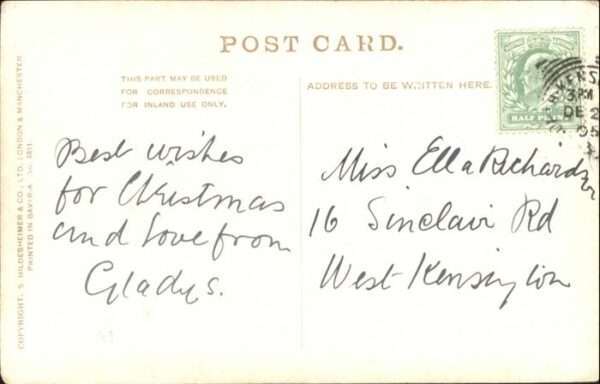 POST CARD.
THIS PART MAY BE USED
FOR CORRESPONDENCE
FOR INLAND USE ONLY.
ADDRESS TO BE WRITTEN HERE.
Best wishes
for Christmas
and love from
Gladys.
Miss Ella Richardson
16 Sinclair Rd
West Kensington
HALF PENNY
3PM
DE 2
05
COPYRIGHT. S HILDESHEIMER & CO., LTD. LONDON & MANCHESTER
PRINTED IN BAVARIA